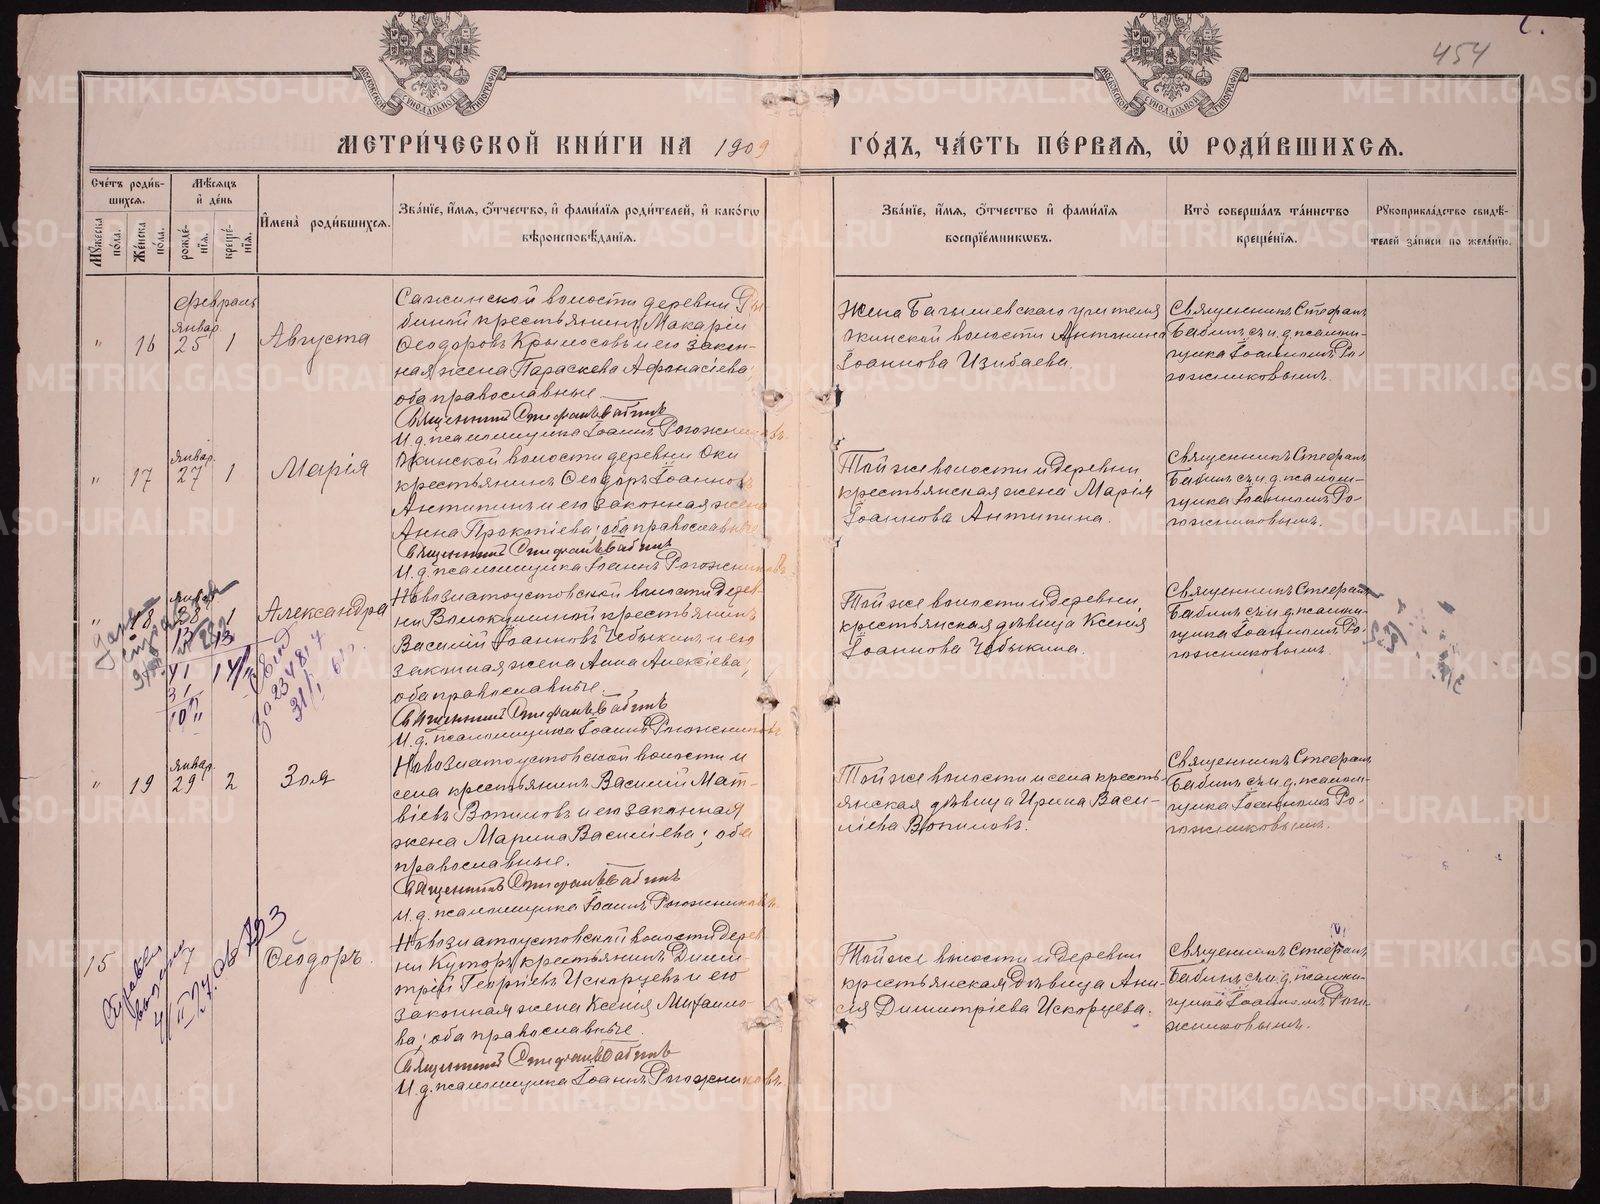 454
МЕТРИ́ЧЕСКОЙ КНИ́ГИ НА 1909 ГО́ДЪ, ЧА́СТЬ ПЕ́РВАЯ, Ѡ РОДИ́ВШИХСЯ.
Сче́тъ роди́вшихся.
Мѣ́сяцъ и де́нь
Имена̀ роди́вшихся.
Зва́нїе, и҆́мя, ѻ҆́тчество, и҆ фами́лїя роди́телей, и҆ како́гѡ вѣроисповѣ́данїя.
Зва́нїе, и҆́мя, ѻ҆́тчество и҆ фами́лїя воспрїе́мникѡвъ.
Кто̀ соверша́лъ та́инство креще́нїя.
Рꙋкоприкла́дство свидѣ́телей за́писи по жела́нїю.
Мꙋ́жеска по́ла.
Же́нска по́ла.
рожде́нїя.
креще́нїя.
февраль
" 16
Январ. 25
1
Августа
Сажинской волости деревни Ря-
биной крестьянинъ Макарій
Ѳеодоровъ Крылосовъ и его закон-
ная жена Параскева Афонасіева;
оба православные
Священникъ Стефанъ Бабинъ
И. д. псаломщика Іоаннъ Рогожниковъ.
Жена учителя
волости Антонина
Іоаннова Изибаева.
Священникъ Стефанъ
Бабинъ съ и. д. псалом-
щика Іоанномъ Ро-
гожниковымъ.
" 17
Январ. 27
1
Марія
волости деревни Оки
крестьянинъ Ѳеодоръ Іоанновъ
Антипинъ и его законная жена
Анна Прокопіева; оба православные
Священникъ Стефанъ Бабинъ
И. д. псаломщика Іоаннъ Рогожниковъ.
Той же волости и деревни
крестьянская жена Марія
Іоаннова Антипина.
Священникъ Стефанъ
Бабинъ съ и. д. псалом-
щика Іоанномъ Ро-
гожниковымъ.
" 18
Январ. 28
1
Александра
Новозлатоустовской волости дерев-
ни Волокушиной крестьянинъ
Василій Іоанновъ Чебыкинъ и его
законная жена Анна Алексіева;
оба православные
Священникъ Стефанъ Бабинъ
И. д. псаломщика Іоаннъ Рогожниковъ
Той же волости и деревни
крестьянская дѣвица Ксенія
Іоаннова Чебыкина.
Священникъ Стефанъ
Бабинъ съ и. д. псалом-
щика Іоанномъ Ро-
гожниковымъ.
" 19
Январ. 29
2
Зоя
Новозлатоустовской волости и
села крестьянинъ Василій Мат-
віевъ Вотиновъ и его законная
жена Марина Василіева; оба
православные.
Священникъ Стефанъ Бабинъ
И. д. псаломщика Іоаннъ Рогожниковъ.
Той же волости и села кресть-
янская дѣвица Ирина Васи-
ліева Вотиновъ.
Священникъ Стефанъ
Бабинъ съ и. д. псалом-
щика Іоанномъ Ро-
гожниковымъ.
15
7
Ѳеодоръ.
Новозлатоустовской волости дерев-
ни Куторъ крестьянинъ Дими-
трій Георгіевъ Искорцевъ и его
законная жена Ксенія Михаило-
ва; оба православные.
Священникъ Стефанъ Бабинъ
И. д. псаломщика Іоаннъ Рогожниковъ.
Той же волости и деревни
крестьянская дѣвица Ани-
сія Димитріева Искорцева.
Священникъ Стефанъ
Бабинъ съ и. д. псалом-
щика Іоанномъ Рого-
жниковымъ.
METRIKI.GASO-URAL.RU